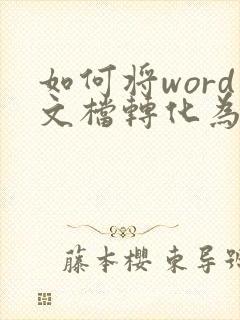 如何将word
文檔轉化為
藤本櫻 東导